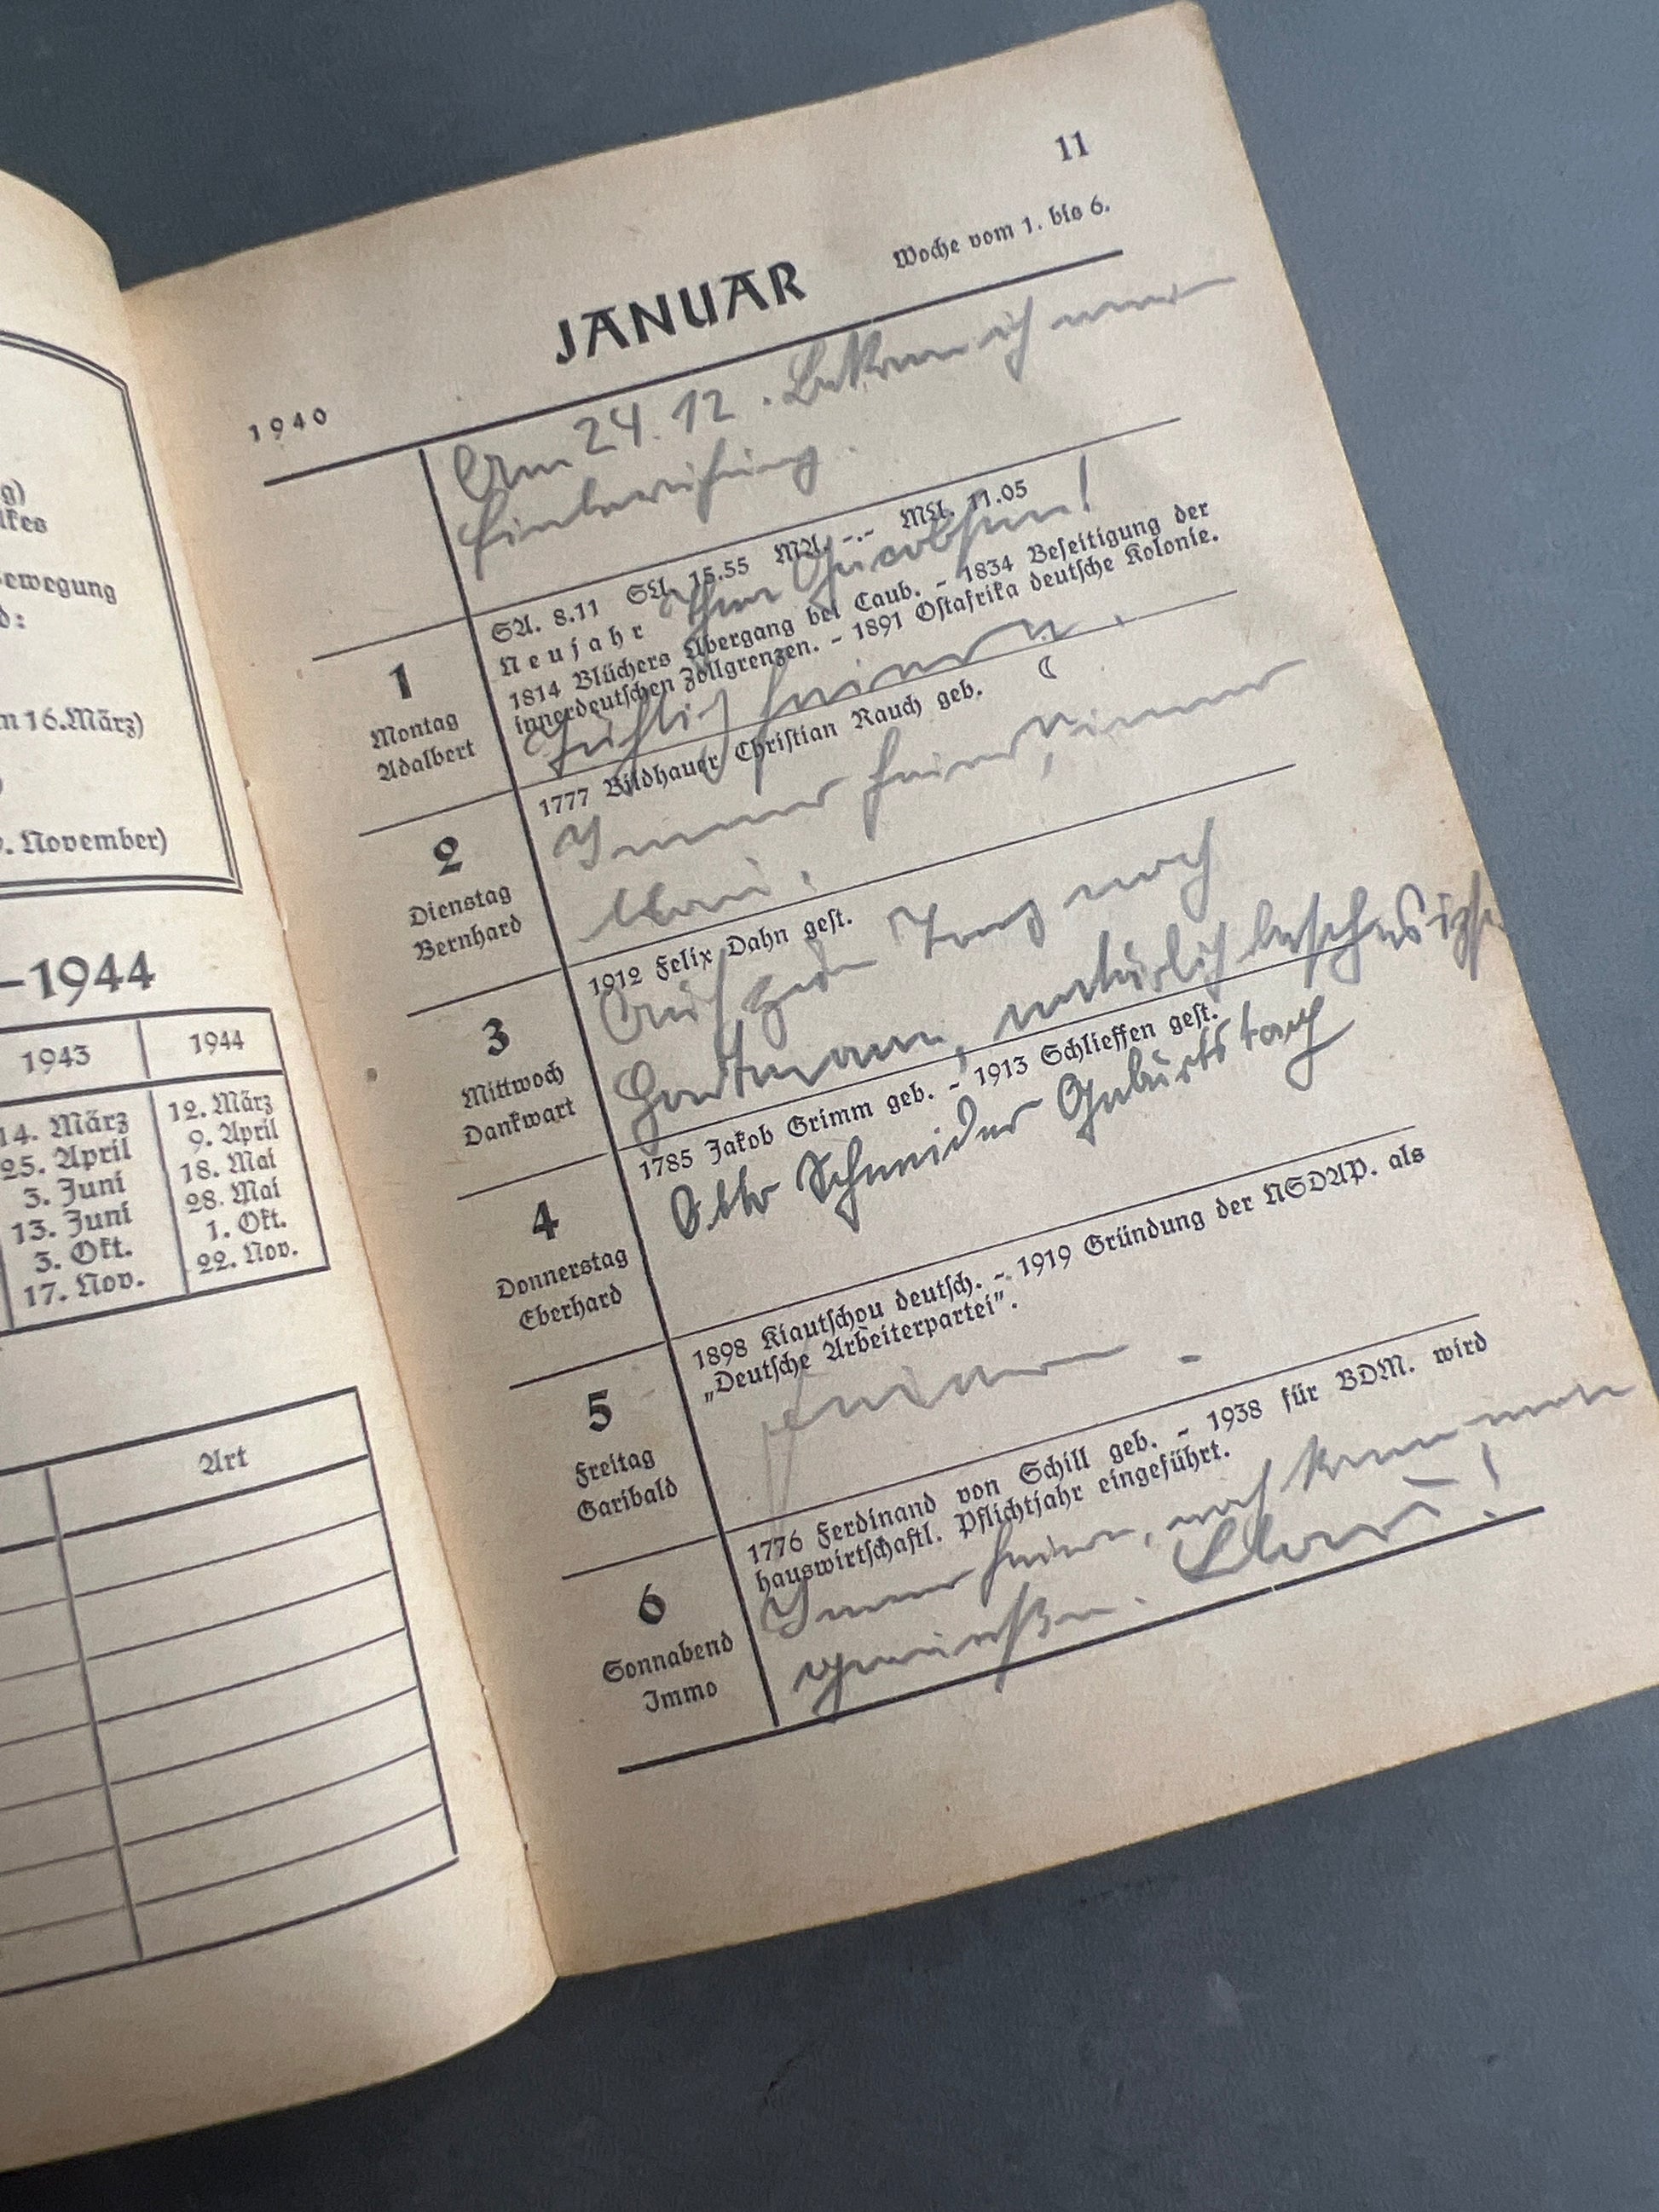 g)
lkes
Bewegung
d:
m 16. März)
)
9. November)
–1944
1943 1944
14. März 12. März
25. April 9. April
3. Juni 18. Mai
13. Juni 28. Mai
3. Okt. 1. Okt.
17. Nov. 22. Nov.
Art
11
Woche vom 1. bis 6.
JANUAR
1940
Am 24.12. Bekam ich
Einberufung.
SA. 8.11 SU. 15.55 MA. -.- MU. 11.05
Neujahr
1814 Blüchers Übergang bei Caub. – 1834 Beseitigung der
innerdeutschen Zollgrenzen. – 1891 Ostafrika deutsche Kolonie.
1
Montag
Adalbert
1777 Bildhauer Christian Rauch geb. ☾
Immer
2
Dienstag
Bernhard
1912 Felix Dahn gest.
Auf noch
natürlich
3
Mittwoch
Dankwart
1785 Jakob Grimm geb. – 1913 Schlieffen gest.
Otto Schneider Geburtstag
4
Donnerstag
Eberhard
1898 Kiautschou deutsch. – 1919 Gründung der NSDAP. als
„Deutsche Arbeiterpartei”.
5
Freitag
Garibald
1776 Ferdinand von Schill geb. – 1938 für BDM. wird
hauswirtschaftl. Pflichtjahr eingeführt.
Immer feiern, noch kann man
genießen.
6
Sonnabend
Immo